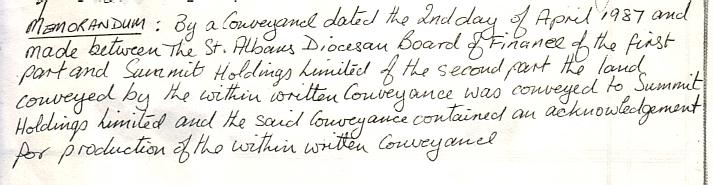 MEMORANDUM : By a Conveyance dated the 2nd day of April 1987 and
made between The St. Albans Diocesan Board of Finance of the first
part and Summit Holdings Limited of the second part the land
conveyed by the within written Conveyance was conveyed to Summit
Holdings Limited and the said Conveyance contained an acknowledgement
for production of the within written Conveyance